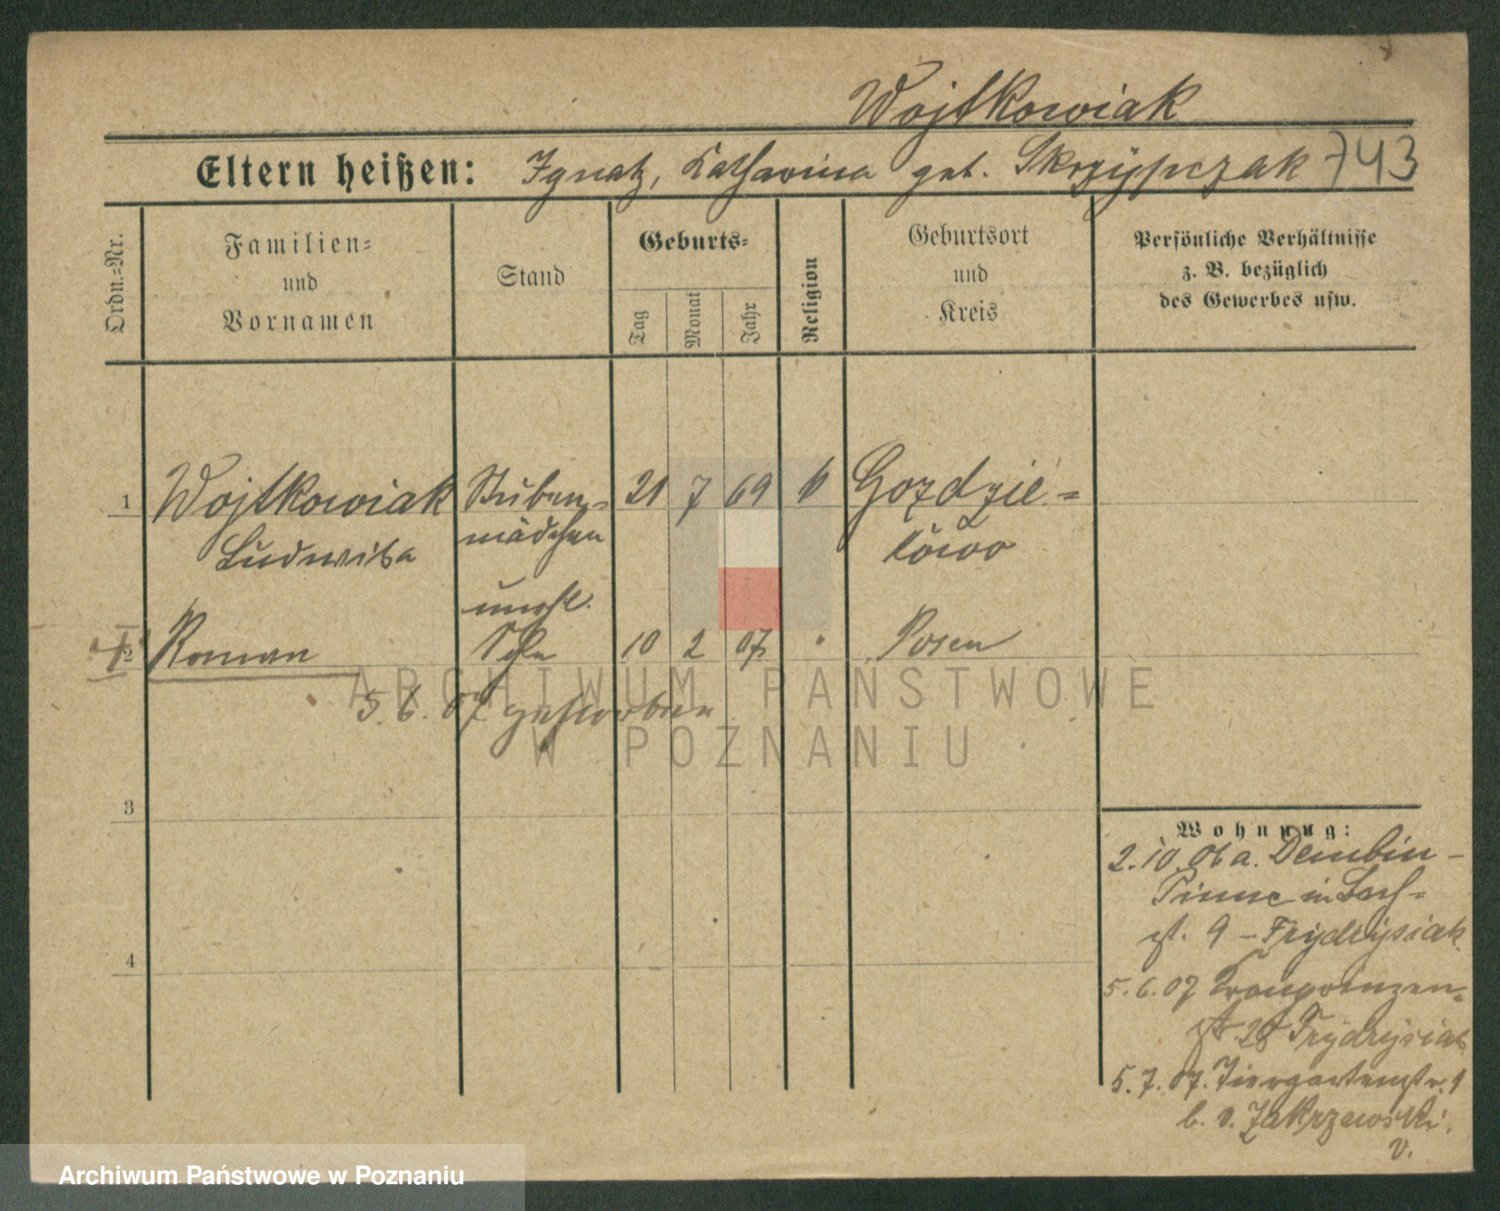 Wojtkowiak
Eltern heißen: Ignatz, Katharina geb. Skrzypczak 743
Ordn.-Nr.
Familien-
und
Vornamen
Stand
Geburts-
Tag
Monat
Jahr
Religion
Geburtsort
und
Kreis
Persönliche Verhältnisse
z. B. bezüglich
des Gewerbes usw.
1 Wojtkowiak Stuben- 21 7 69 k Gozdzie-
Ludwika mädchen
unehl.
2 Roman Sohn 10 2 07 " Posen
5.6.07 gestorben
ARCHIWUM PAŃSTWOWE
W POZNANIU
3
4
Wohnung:
2.10.06 a. Dembin-
Pinne in
st. 9 – Frydrysiak
5.6.07 Kronprinzen-
str 28 Frydrysiak
5.7.07. Tiergartenstr. 1
b. v. Zakrzewski.
v.
Archiwum Państwowe w Poznaniu